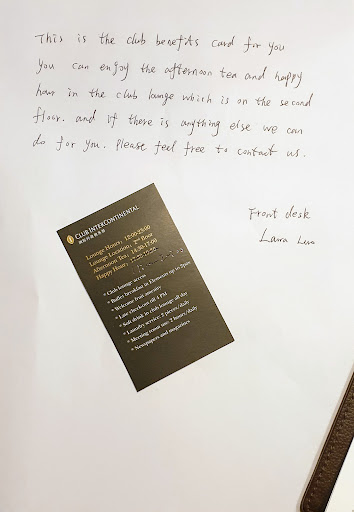 This is the club benefits card for you
you can enjoy the afternoon tea and happy
hour in the club lounge which is on the second
floor. and if there is anything else we can
do for you. Please feel free to contact us.
Front desk
Laura
CLUB INTERCONTINENTAL
Lounge Hours:
Lounge Location: 2nd floor
Afternoon Tea: 14:30-17:00
Happy Hour:
* Club lounge access
* Buffet breakfast in Elements up to 2pax
* Welcome fruit amenity
* Late check-out till 4 PM
* Soft drink in club lounge all day
* Laundry service: 2 pieces/daily
* Meeting room use: 2 hours/daily
* Newspapers and magazines